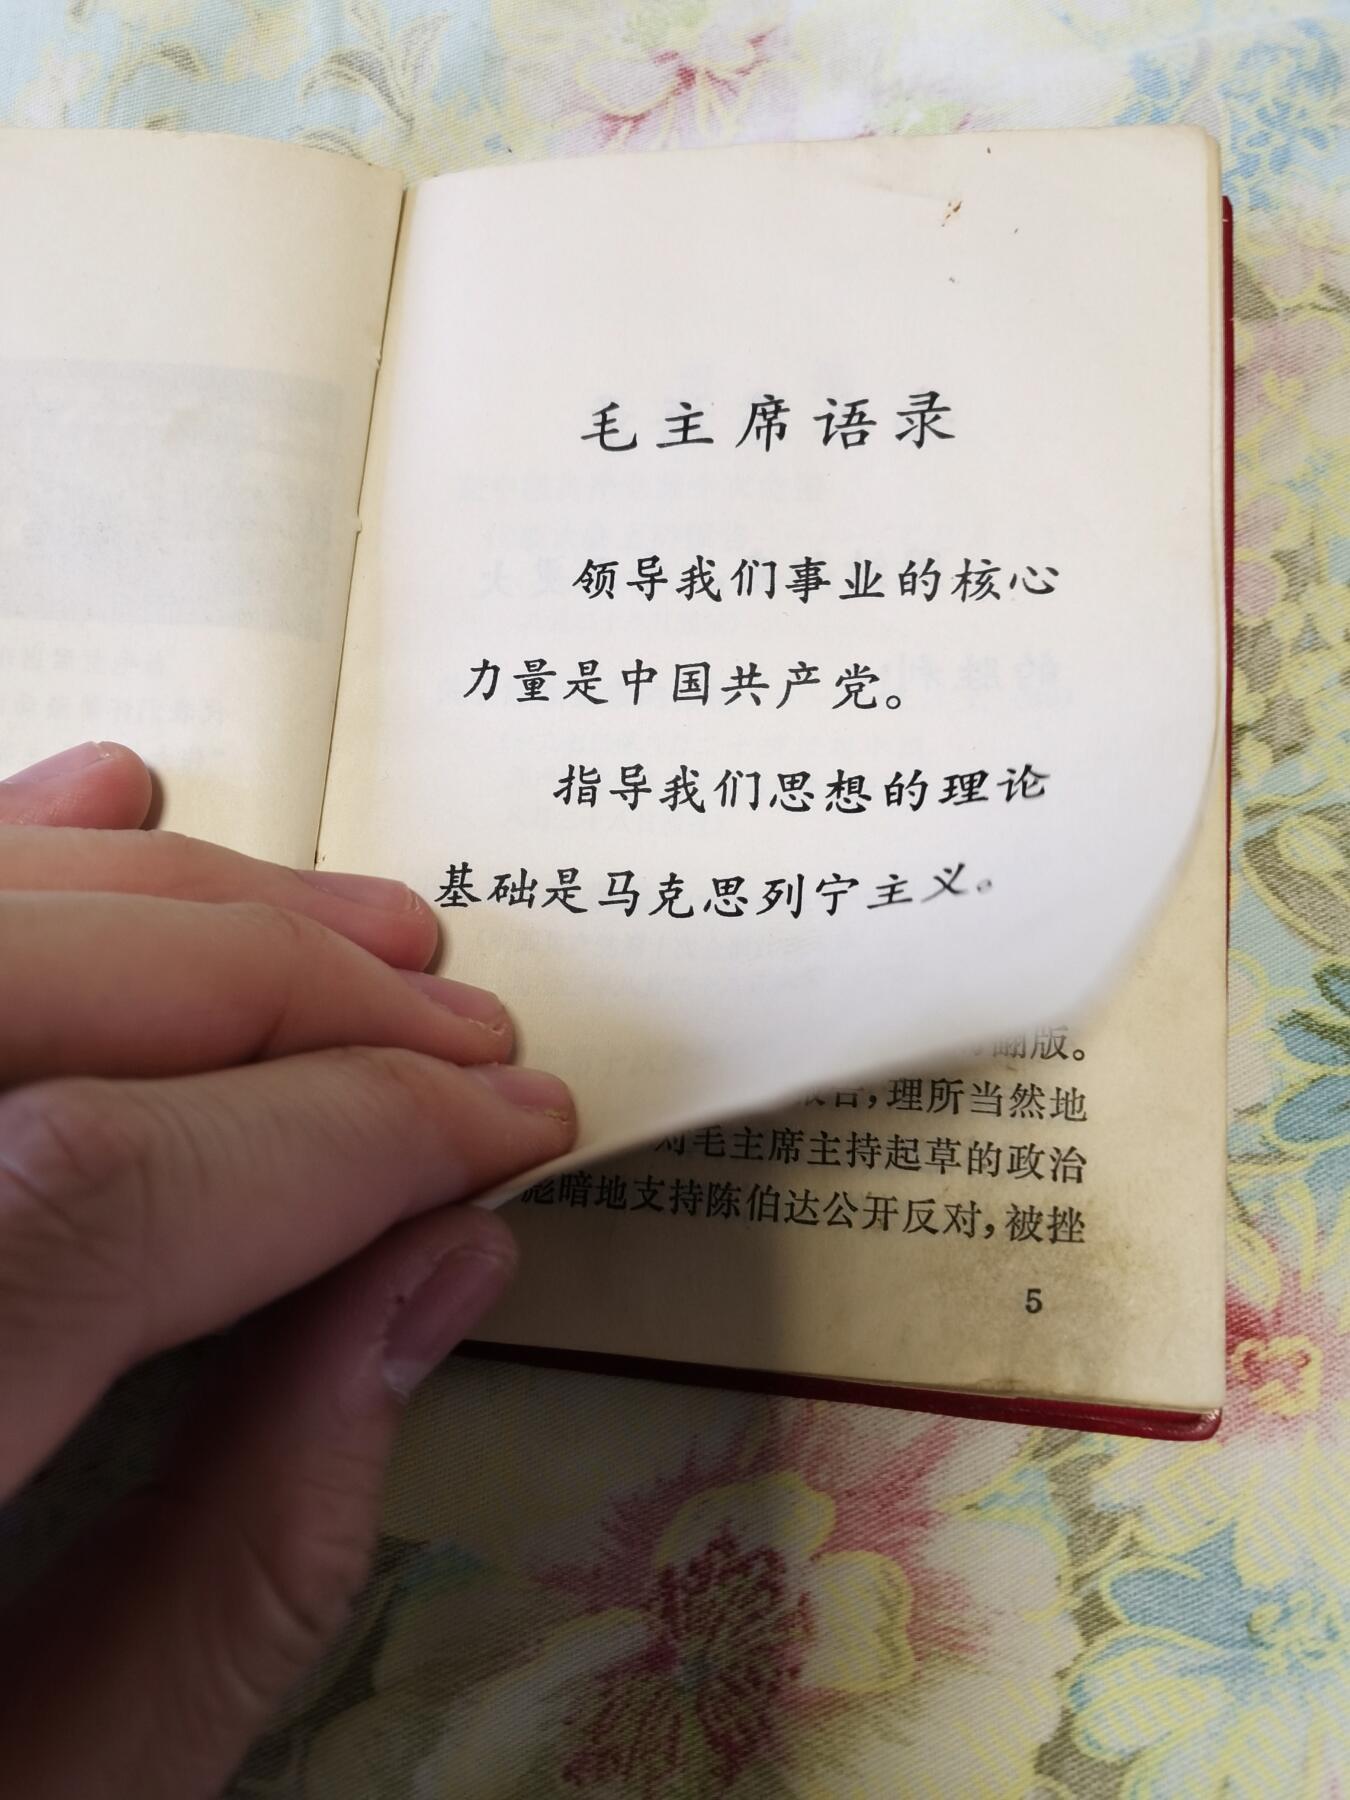 毛主席语录
领导我们事业的核心
力量是中国共产党。
指导我们思想的理论
基础是马克思列宁主义。
翻版。
报告，理所当然地
对毛主席主持起草的政治
彪暗地支持陈伯达公开反对，被挫
5